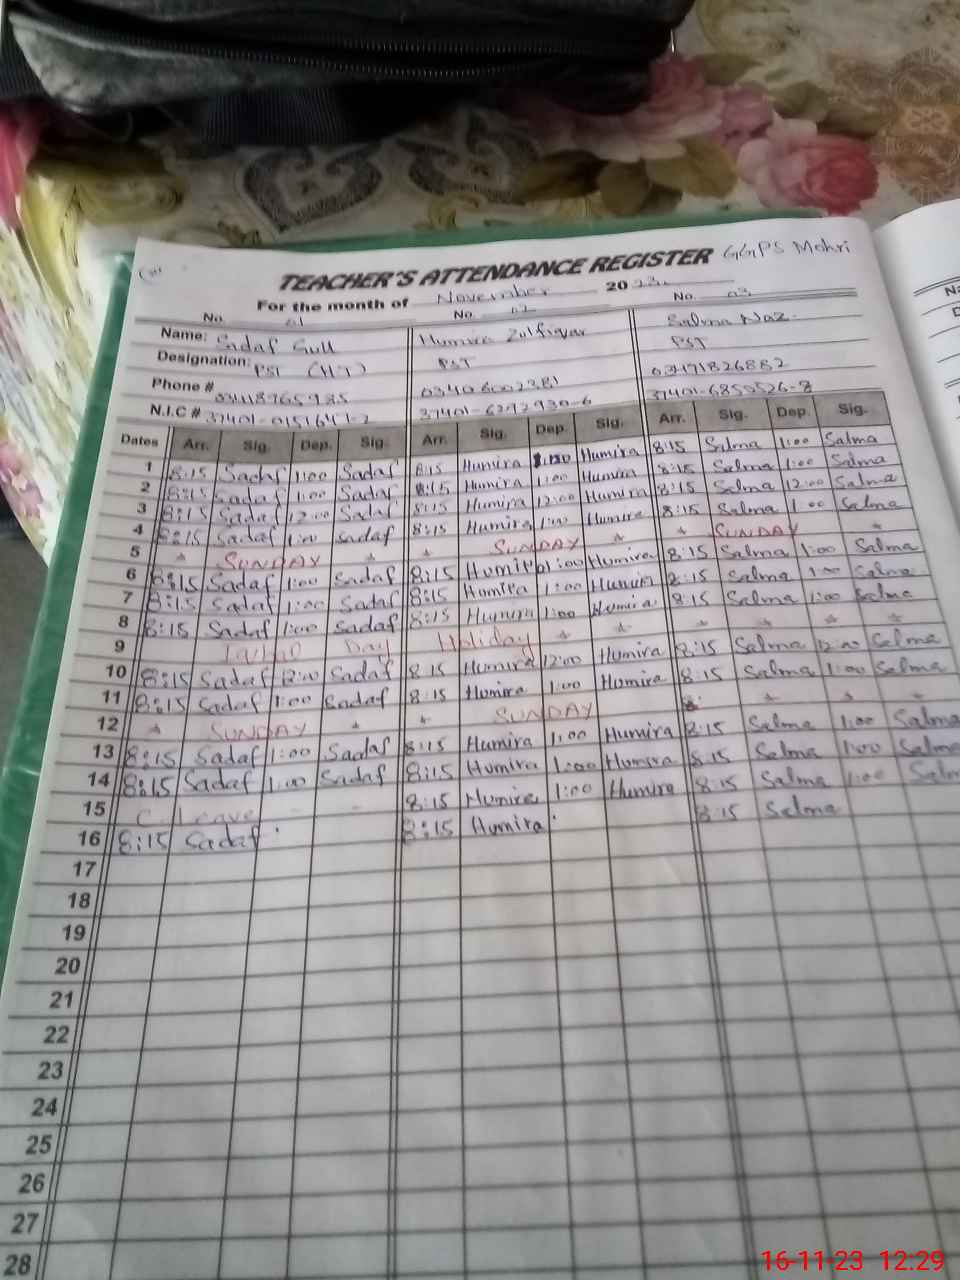 TEACHER'S ATTENDANCE REGISTER GGPS Mohri
For the month of November 20 23
No. 01 No. 02 No. 03
Name: Sadaf Gull Humira Zulfiqar Salma Naz
Designation: PST (H.T) PST PST
Phone # 03406002381 03471826882
N.I.C # 37401-6292930-6 37401-6855526-8
Dates Arr. Sig. Dep. Sig. Arr. Sig. Dep. Sig. Arr. Sig. Dep. Sig.
1 8:15 Sadaf 1:00 Sadaf 8:15 Humira 1:00 Humira 8:15 Salma 1:00 Salma
2 8:15 Sadaf 1:00 Sadaf 8:15 Humira 1:00 Humira 8:15 Salma 1:00 Salma
3 8:15 Sadaf 12:00 Sadaf 8:15 Humira 12:00 Humira 8:15 Salma 12:00 Salma
4 8:15 Sadaf 1:00 Sadaf 8:15 Humira 1:00 Humira 8:15 Salma 1:00 Salma
5 * SUNDAY * * SUNDAY * * SUNDAY *
6 8:15 Sadaf 1:00 Sadaf 8:15 Humira 1:00 Humira 8:15 Salma 1:00 Salma
7 8:15 Sadaf 1:00 Sadaf 8:15 Humira 1:00 Humira 8:15 Salma 1:00 Salma
8 8:15 Sadaf 1:00 Sadaf 8:15 Humira 1:00 Humira 8:15 Salma 1:00 Salma
9 Iqbal Day Holiday * * * * * *
10 8:15 Sadaf 12:00 Sadaf 8:15 Humira 12:00 Humira 8:15 Salma 12:00 Salma
11 8:15 Sadaf 1:00 Sadaf 8:15 Humira 1:00 Humira 8:15 Salma 1:00 Salma
12 * SUNDAY * * SUNDAY * * *
13 8:15 Sadaf 1:00 Sadaf 8:15 Humira 1:00 Humira 8:15 Salma 1:00 Salma
14 8:15 Sadaf 1:00 Sadaf 8:15 Humira 1:00 Humira 8:15 Salma 1:00 Salma
15 C. Leave - - 8:15 Humira 1:00 Humira 8:15 Salma 1:00 Salm
16 8:15 Sadaf 8:15 Humira 8:15 Salma
17
18
19
20
21
22
23
24
25
26
27
28
16-11-23 12:29